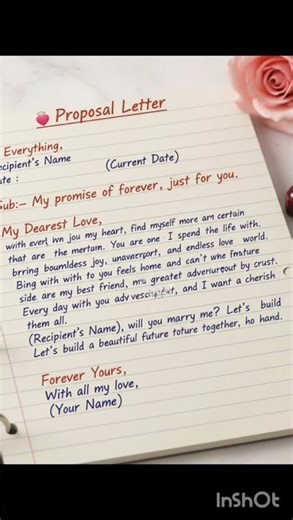 Proposal Letter
Everything,
ecipient's Name
(Current Date)
te :
ub:- My promise of forever, just for you.
My Dearest Love,
with everl wn jou my heart, find myself more am certain
that are the mertom. You are one I spend the life with.
brring boumldess joy, and endless love world.
Bing with with to you feels home and can't whe fmature
side are my best friend, my greatet by crust.
Every day with you and I want a cherish
them all.
(Recipient's Name), will you marry me? Let's build
Let's build a beautiful future toture together, ho hand.
Forever Yours,
With all my love,
(Your Name)
InShOt